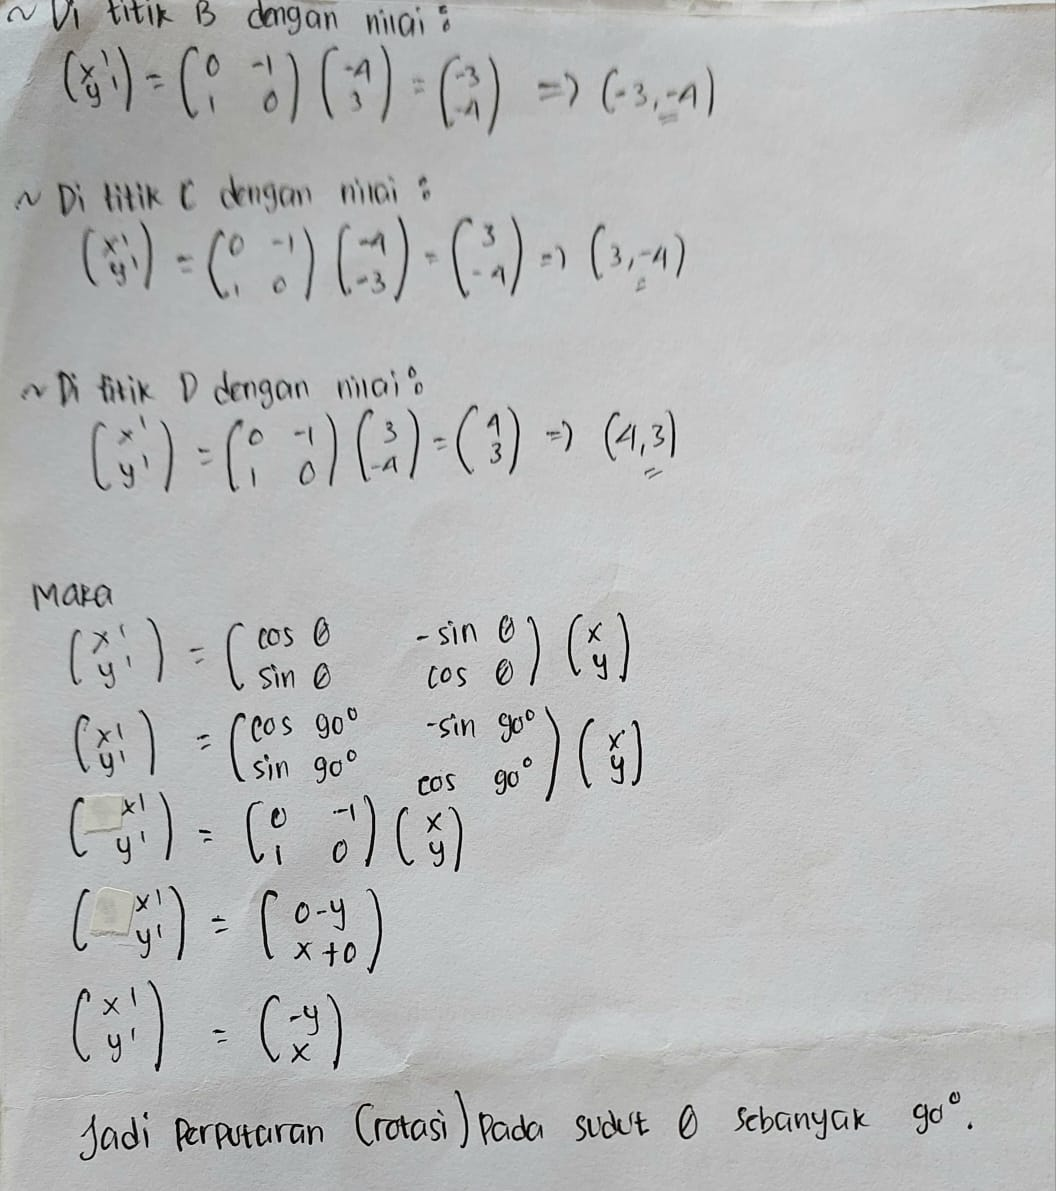 ~ Di titik B dengan nilai :
(x' y') = (0 -1 1 0) (-4 3) = (-3 -4) => (-3,-4)
~ Di titik C dengan nilai :
(x' y') = (0 -1 1 0) (-4 -3) = (3 -4) => (3,-4)
~ Di titik D dengan nilai :
(x' y') = (0 -1 1 0) (3 -4) = (4 3) => (4,3)
Maka
(x' y') = (cos θ -sin θ sin θ cos θ) (x y)
(x' y') = (cos 90° -sin 90° sin 90° cos 90°) (x y)
(x' y') = (0 -1 1 0) (x y)
(x' y') = (0-y x+0)
(x' y') = (-y x)
Jadi Perputaran (rotasi) Pada sudut θ sebanyak 90°.